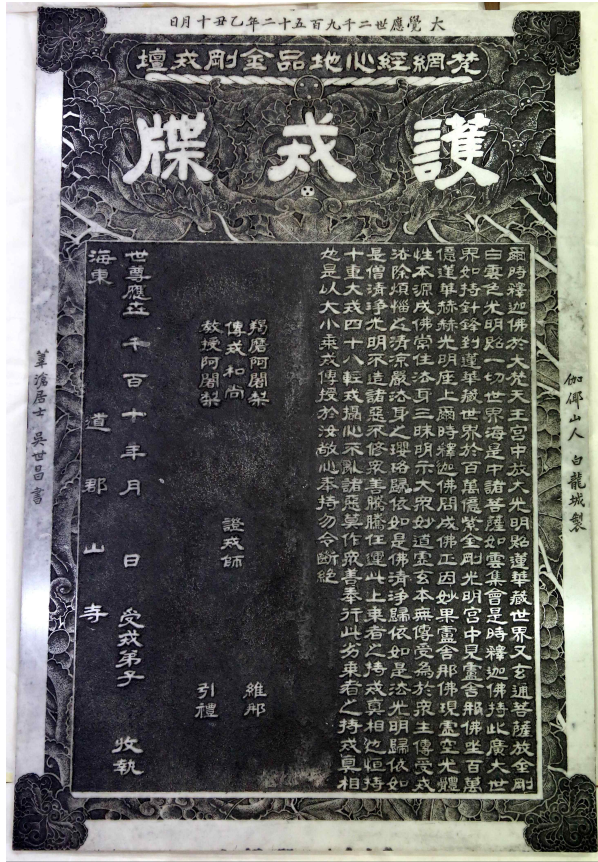 大覺應世二千九百五十二年乙丑十月日
梵網經心地品金剛戒壇
護戒牒
爾時釋迦佛於大梵天王宮中放大光明照蓮華藏世界又玄通菩薩放金剛
白雲色光明照一切世界海是中諸菩薩如雲集會是時釋迦佛持此廣大世
界如括針鋒到蓮華藏世界於百萬億紫金剛光明宮中見盧舍那佛坐百萬
億蓮華赫赫光明座上爾時釋迦佛問成佛正因妙果盧舍那佛現虛空光體
性本源成佛常住法身三昧明示大衆妙道虛玄本無傳受為於衆主傳受戒
法除煩惱之清涼嚴法身之瓔珞歸依如是佛清淨歸依如是法光明歸依如
是僧清淨光明不造諸惡不修衆善騰騰任運此上乘者之持戒真相也恒持
十重大戒四十八輕戒攝心不亂諸惡莫作衆善奉行此劣乘者之持戒真相
也是以大小乘戒傳授於汝敬心奉持勿令斷絕
羯磨阿闍梨 維那
傳戒和尚 證戒師
教授阿闍梨 引禮
世尊應世 千百十年月 日 受戒弟子 收執
海東 道 郡 山 寺
伽倻山人 白龍城製
葦滄居士 吳世昌書